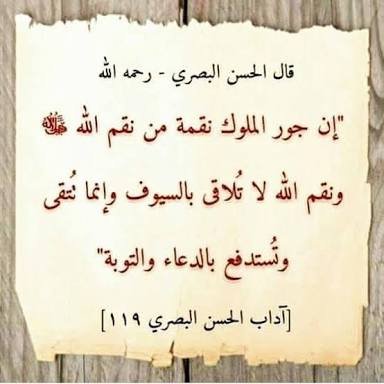 قال الحسن البصري - رحمه الله
"إن جور الملوك نقمة من نقم الله ﷻ
ونقم الله لا تُلاقى بالسيوف وإنما تُتقى
وتُستدفع بالدعاء والتوبة"
[آداب الحسن البصري ١١٩]